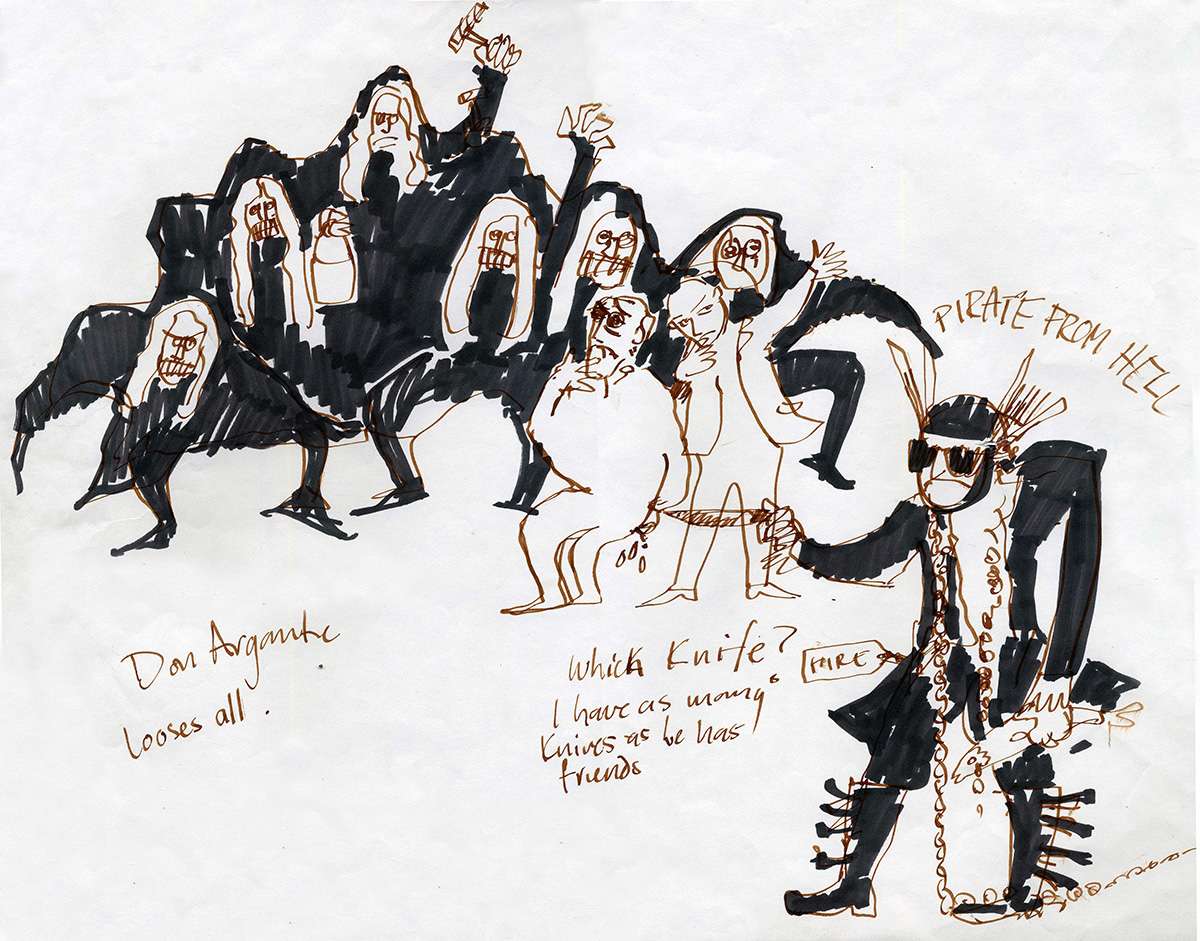 PIRATE FROM HELL
Don Argante
looses all.
Which Knife?
I have as many
Knives as he has
friends
HIRE